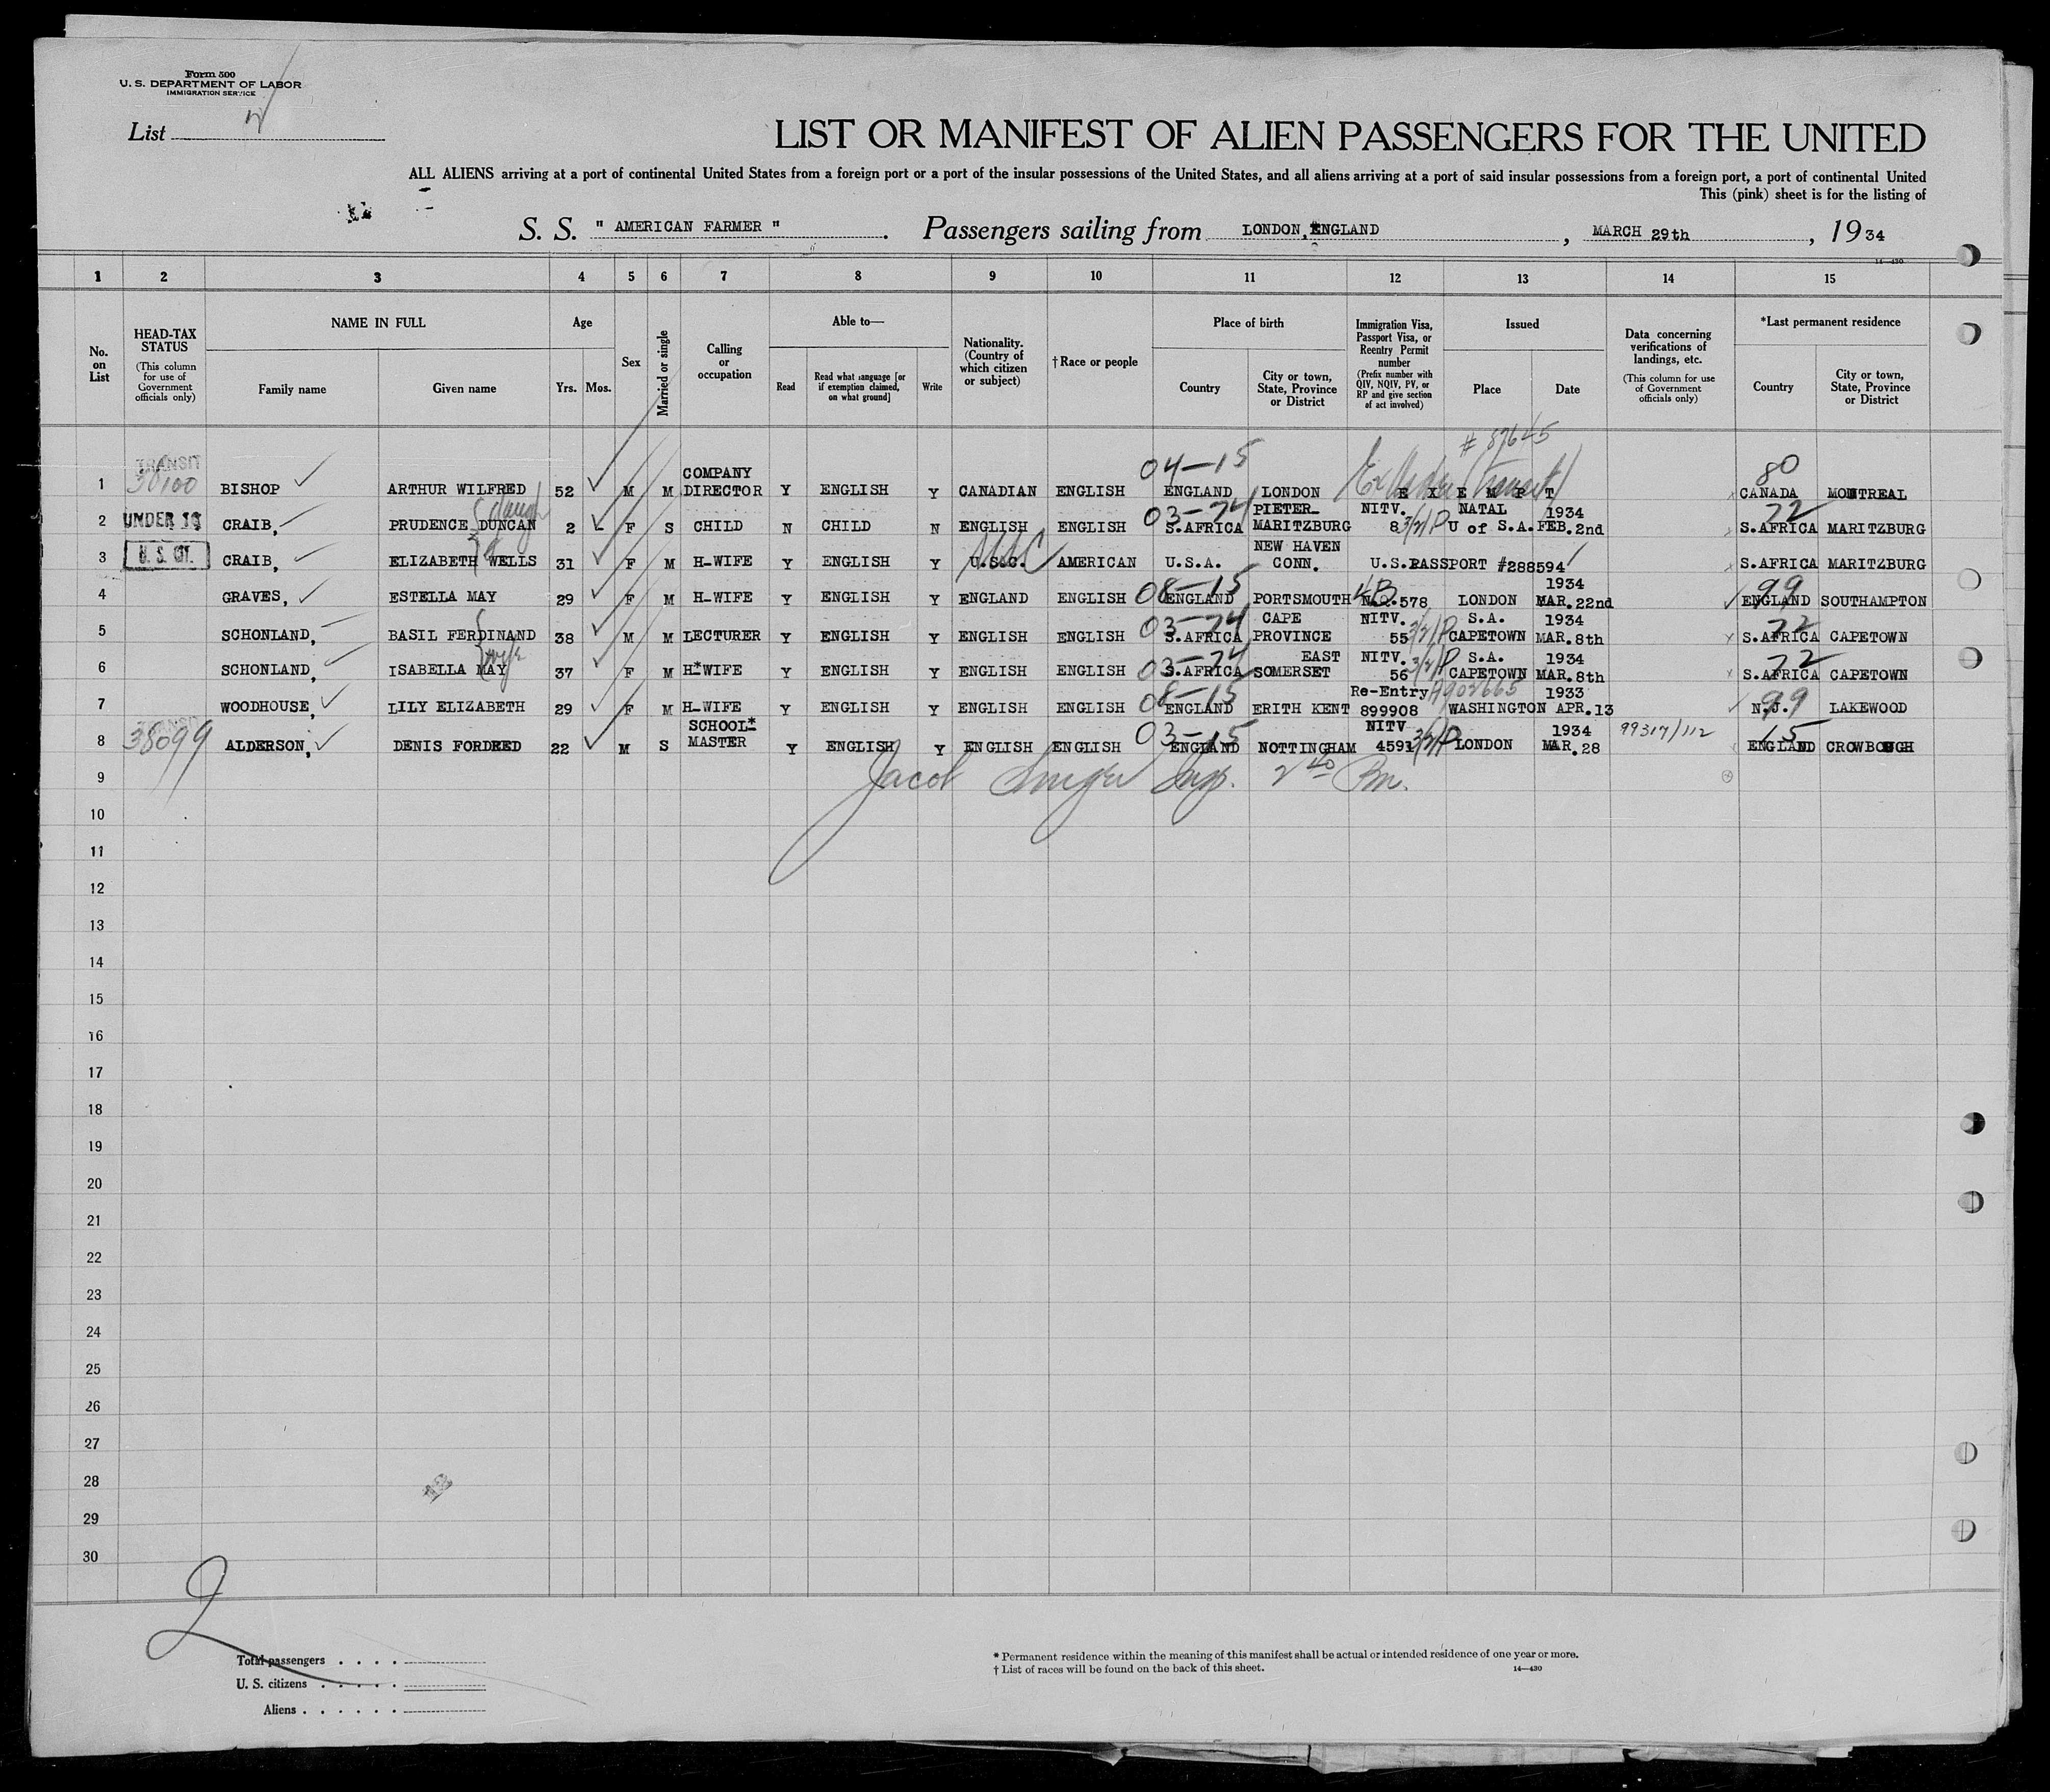 Form 500
U. S. DEPARTMENT OF LABOR
IMMIGRATION SERVICE
List
LIST OR MANIFEST OF ALIEN PASSENGERS FOR THE UNITED
ALL ALIENS arriving at a port of continental United States from a foreign port or a port of the insular possessions of the United States, and all aliens arriving at a port of said insular possessions from a foreign port, a port of continental United
This (pink) sheet is for the listing of
S. S. " AMERICAN FARMER " . Passengers sailing from LONDON, ENGLAND , MARCH 29th , 1934
14—430
1 2 3 4 5 6 7 8 9 10 11 12 13 14 15
No. on List
HEAD-TAX STATUS
(This column for use of Government officials only)
NAME IN FULL
Family name
Given name
Age
Yrs. Mos.
Sex
Married or single
Calling or occupation
Able to—
Read
Read what language [or if exemption claimed, on what ground]
Write
Nationality. (Country of which citizen or subject)
†Race or people
Place of birth
Country
City or town, State, Province or District
Immigration Visa, Passport Visa, or Reentry Permit number
(Prefix number with QIV, NQIV, PV, or RP and give section of act involved)
Issued
Place
Date
Data concerning verifications of landings, etc.
(This column for use of Government officials only)
*Last permanent residence
Country
City or town, State, Province or District
# 87645
TRANSIT COMPANY 04—15 80
1 BISHOP ARTHUR WILFRED 52 M M DIRECTOR Y ENGLISH Y CANADIAN ENGLISH ENGLAND LONDON E X E M P T CANADA MONTREAL
daugh 03—74 PIETER- NITV. NATAL 1934 72
2 UNDER 16 CRAIB, PRUDENCE DUNCAN 2 F S CHILD N CHILD N ENGLISH ENGLISH S.AFRICA MARITZBURG 8 3/2/P U of S.A. FEB.2nd S.AFRICA MARITZBURG
USC NEW HAVEN
3 U. S. CIT. CRAIB, ELIZABETH WELLS 31 F M H-WIFE Y ENGLISH Y U.S.C. AMERICAN U.S.A. CONN. U.S.PASSPORT #288594 S.AFRICA MARITZBURG
08—15 4B 1934 99
4 GRAVES, ESTELLA MAY 29 F M H-WIFE Y ENGLISH Y ENGLAND ENGLISH ENGLAND PORTSMOUTH 578 LONDON MAR.22nd ENGLAND SOUTHAMPTON
03—74 CAPE NITV. S.A. 1934 72
5 SCHONLAND, BASIL FERDINAND 38 M M LECTURER Y ENGLISH Y ENGLISH ENGLISH S.AFRICA PROVINCE 55 3/2/P CAPETOWN MAR.8th S.AFRICA CAPETOWN
wife 03—74 EAST NITV. S.A. 1934 72
6 SCHONLAND, ISABELLA MAY 37 F M H*WIFE Y ENGLISH Y ENGLISH ENGLISH S.AFRICA SOMERSET 56 3/2/P CAPETOWN MAR.8th S.AFRICA CAPETOWN
08—15 Re-Entry A902665 1933 99
7 WOODHOUSE, LILY ELIZABETH 29 F M H-WIFE Y ENGLISH Y ENGLISH ENGLISH ENGLAND ERITH KENT 899908 WASHINGTON APR.13 N.J. LAKEWOOD
TRANSIT 38099 SCHOOL* 03—15 NITV 1934 99317/112 15
8 ALDERSON, DENIS FORDRED 22 M S MASTER Y ENGLISH Y ENGLISH ENGLISH ENGLAND NOTTINGHAM 4591 3/2/P LONDON MAR.28 ENGLAND CROWBOUGH
9 Jacob Insp.
10
11
12
13
14
15
16
17
18
19
20
21
22
23
24
25
26
27
28
29
30
2
Total passengers . . . .
U. S. citizens . . . . .
Aliens . . . . . .
* Permanent residence within the meaning of this manifest shall be actual or intended residence of one year or more.
† List of races will be found on the back of this sheet.
14—430